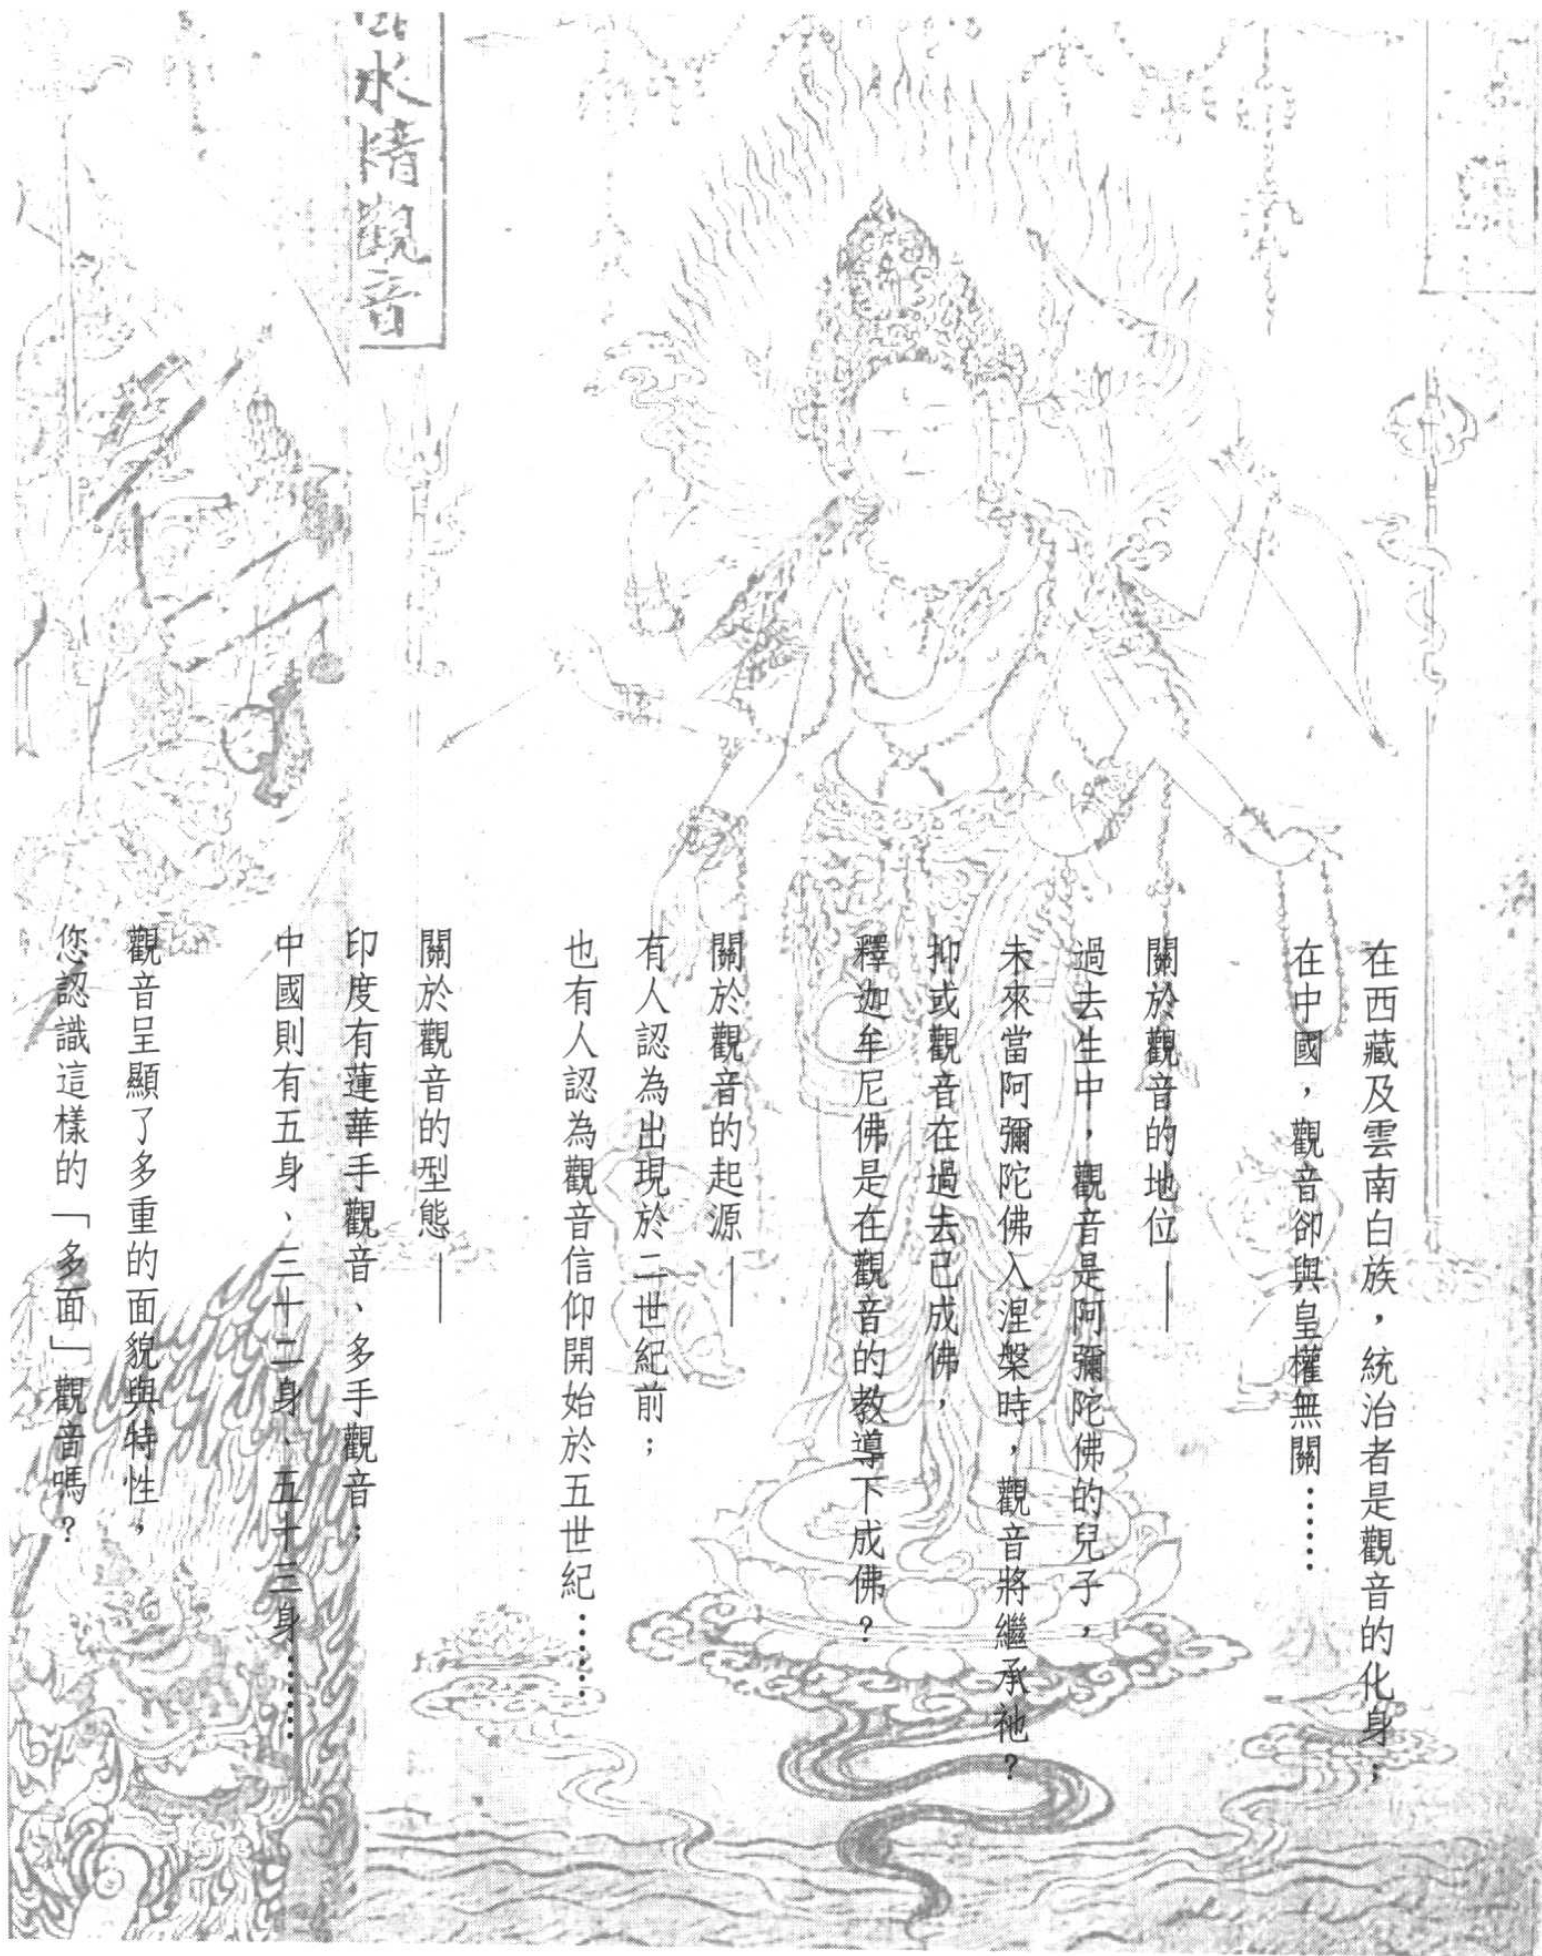 在西藏及雲南白族，統治者是觀音的化身；
在中國，觀音卻與皇權無關……
關於觀音的地位——
過去生中，觀音是阿彌陀佛的兒子，
未來當阿彌陀佛入涅槃時，觀音將繼承祂？
抑或觀音在過去已成佛，
釋迦牟尼佛是在觀音的教導下成佛？
關於觀音的起源——
有人認為出現於二世紀前；
也有人認為觀音信仰開始於五世紀……
關於觀音的型態——
印度有蓮華手觀音、多手觀音；
中國則有五身、三十二身、五十三身……
觀音呈顯了多重的面貌與特性，
您認識這樣的「多面」觀音嗎？
水精觀音